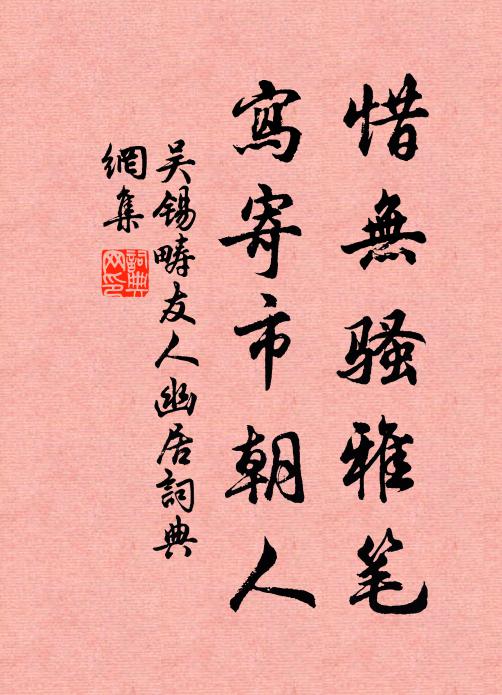 惜無骚雅笔
寫寄市朝人
吴锡疇友人幽居詞典
網集
詞典
网印